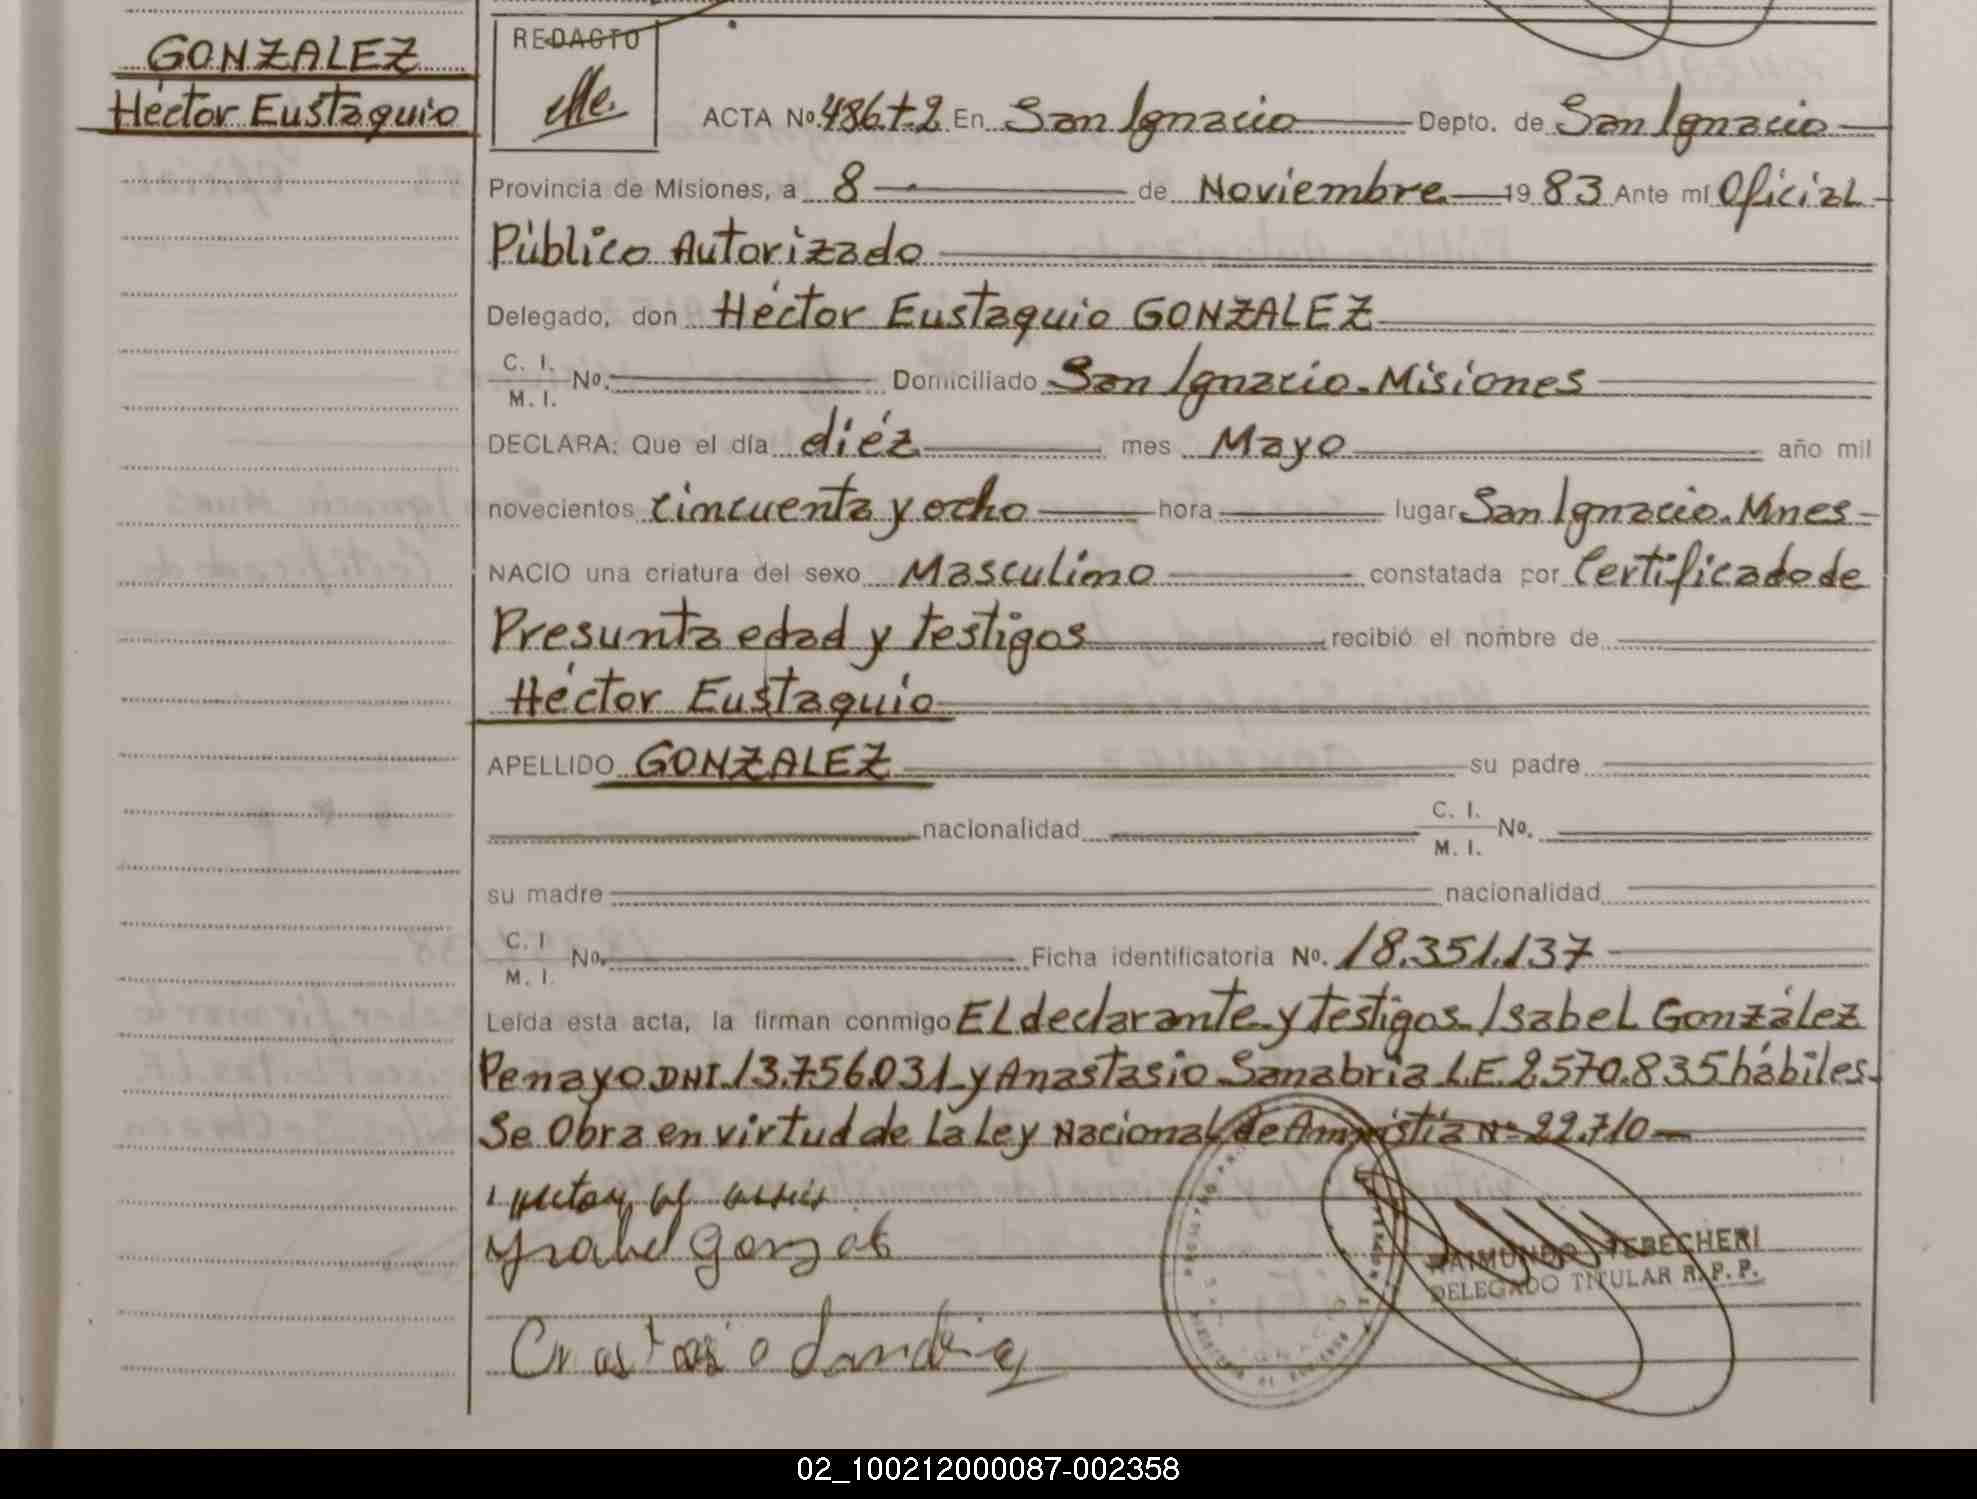 GONZALEZ
Héctor Eustaquio
REDACTO
ACTA Nº 486t2 En San Ignacio Depto. de San Ignacio
Provincia de Misiones, a 8 de Noviembre 1983 Ante mí Oficial
Público Autorizado
Delegado, don Héctor Eustaquio GONZALEZ
C. I. M. I. Nº. Domiciliado San Ignacio. Misiones
DECLARA: Que el día diéz mes Mayo año mil
novecientos cincuenta y ocho hora lugar San Ignacio. Mnes
NACIO una criatura del sexo Masculino constatada por Certificado de
Presunta edad y testigos recibió el nombre de
Héctor Eustaquio
APELLIDO GONZALEZ su padre
nacionalidad C. I. M. I. Nº.
su madre nacionalidad
C. I M. I. Nº. Ficha identificatoria Nº. 18.351.137
Leída esta acta, la firman conmigo EL declarante y testigos Isabel González
Penayo DNI. 13.756.031 y Anastasio Sanabria L.E. 2.570.835 hábiles.
Se Obra en virtud de La Ley Nacional de Amnistía Nº 22.710
Ysabel
RAIMUNDO TEBECHERI
DELEGADO TITULAR R. P. P.
02_100212000087-002358